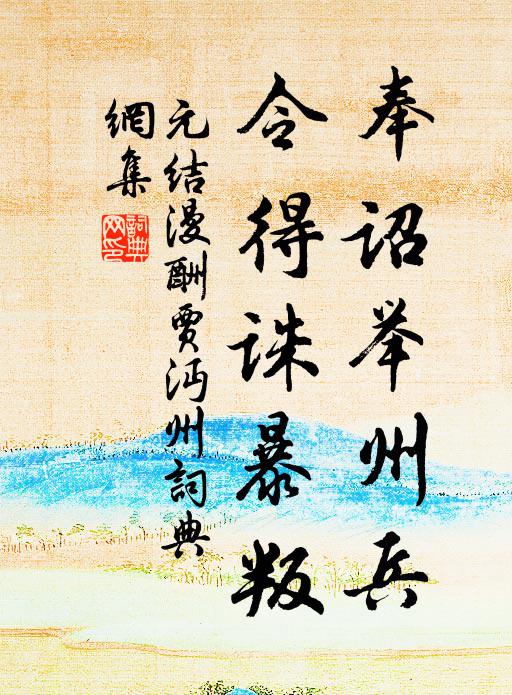 奉诏举州兵
令得诛暴叛
元结漫酬贾沔州词典
網集
詞典網印